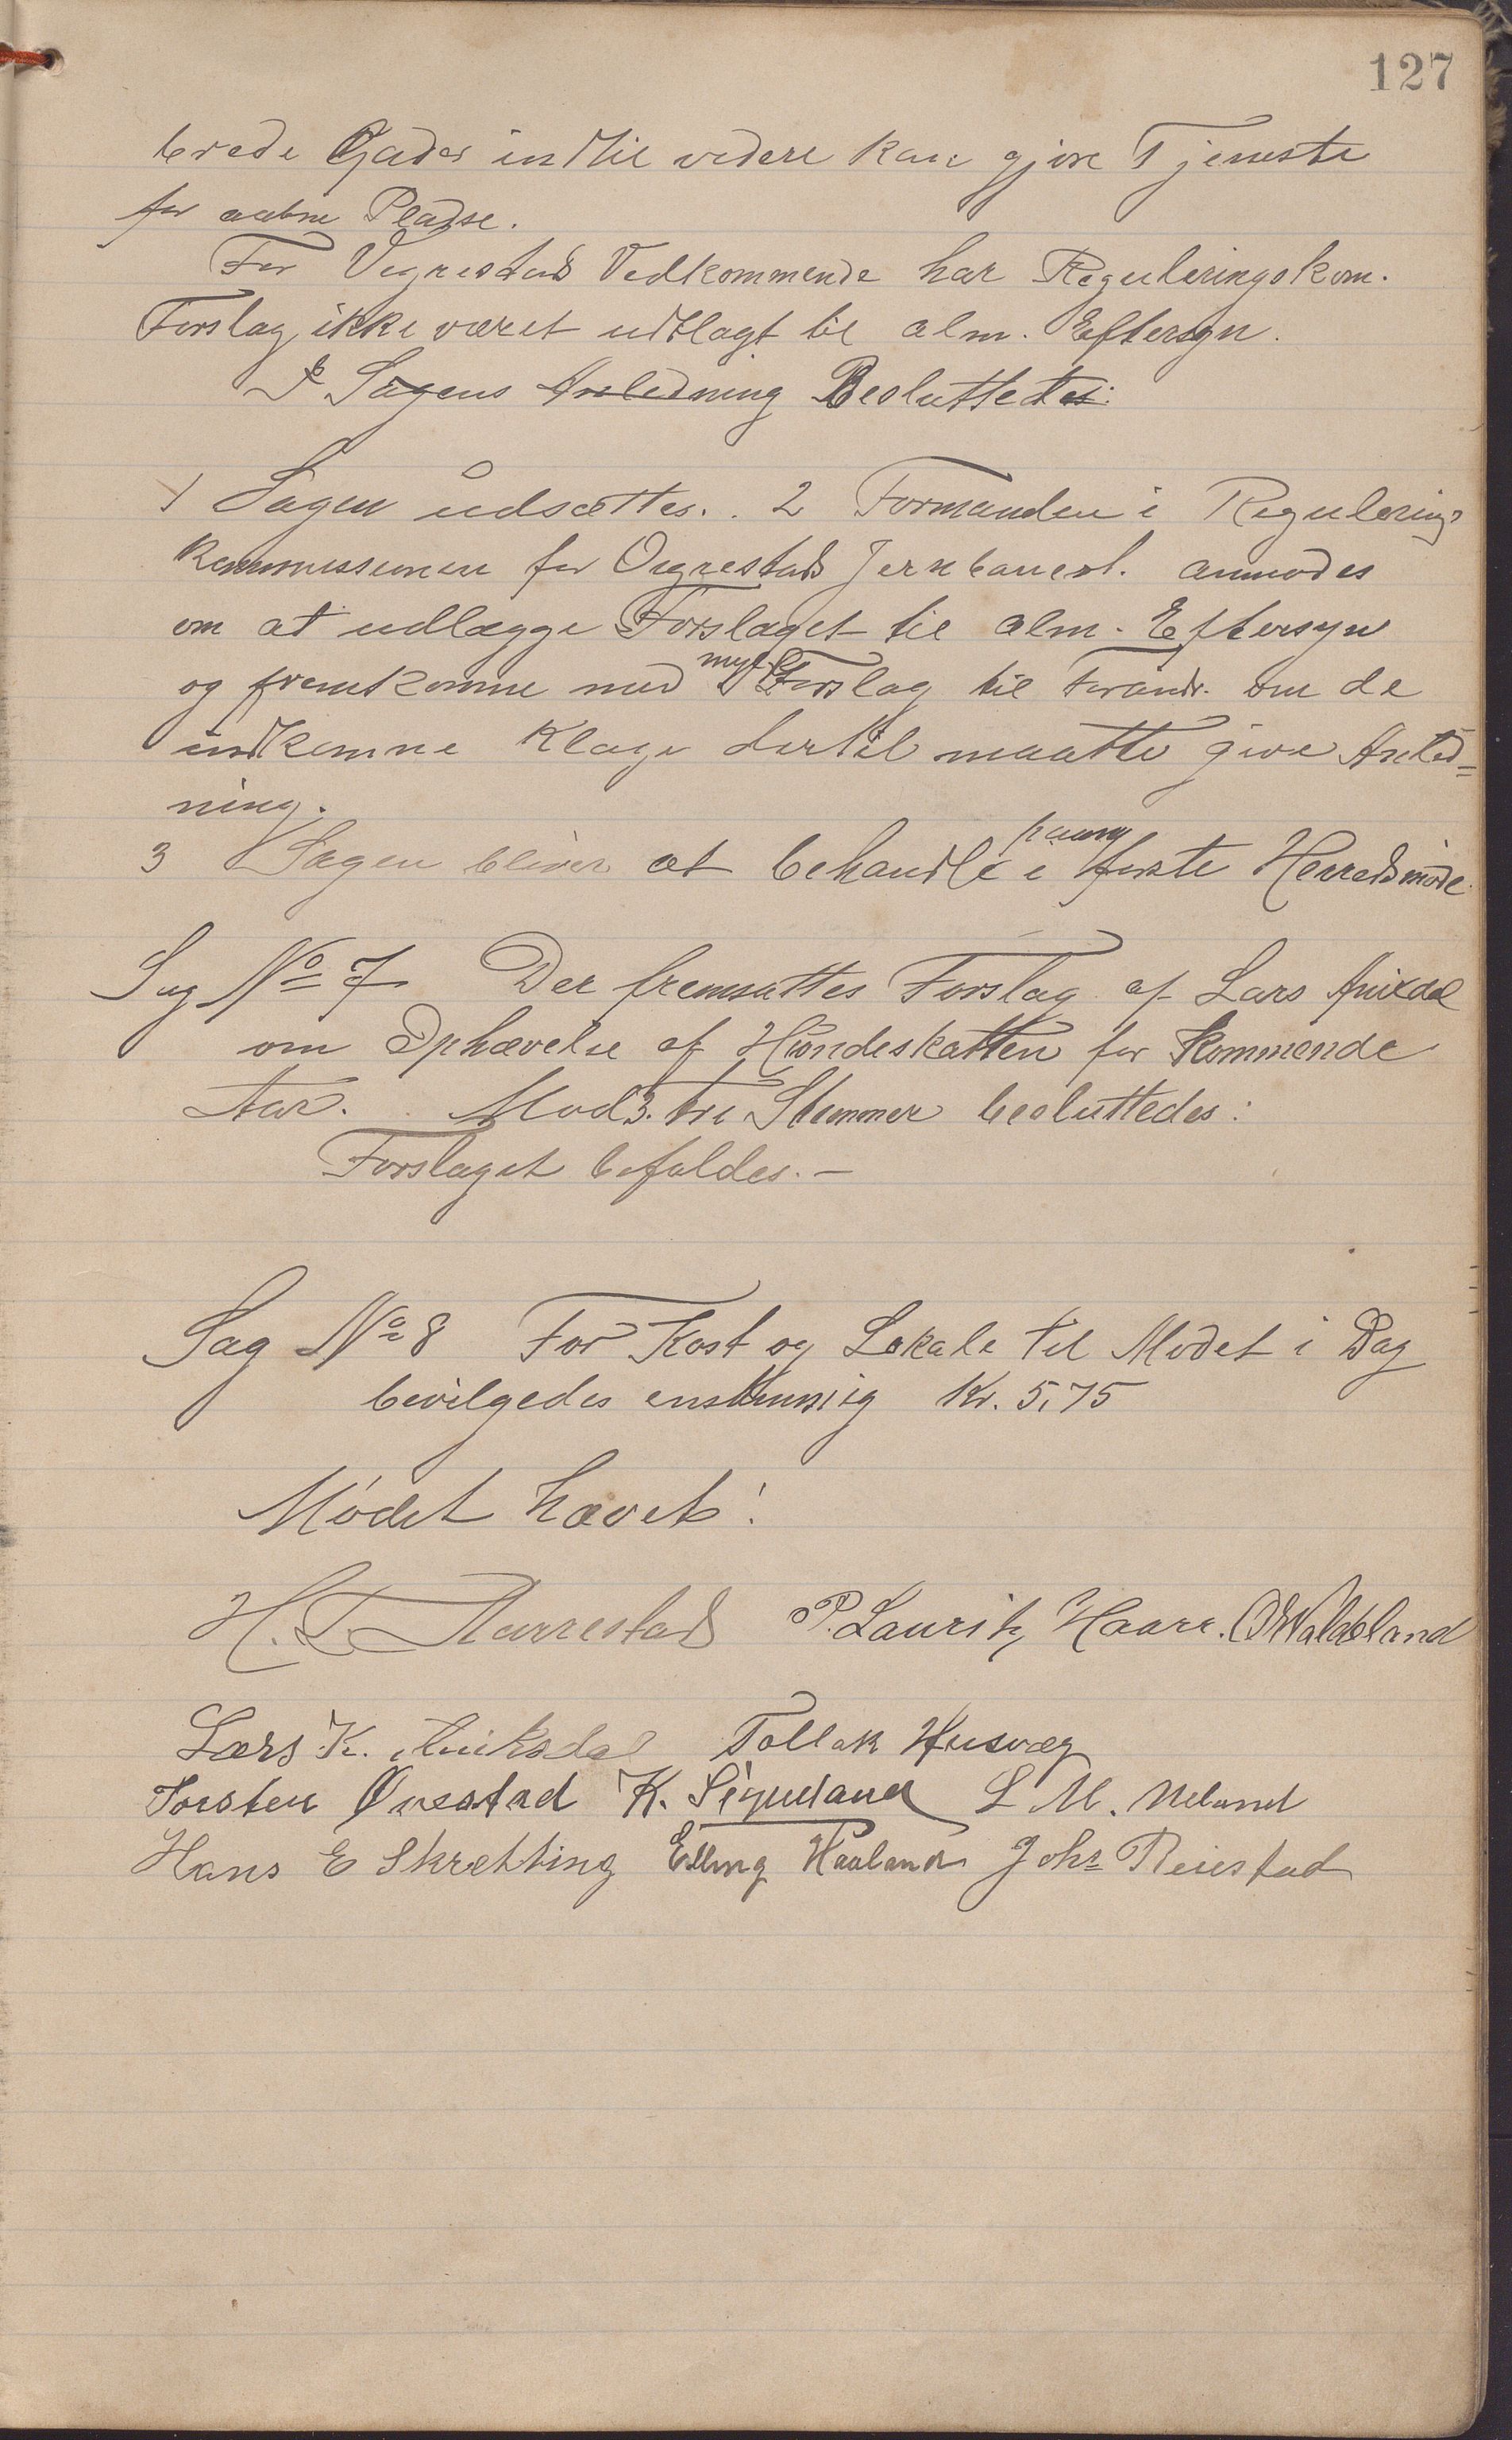 127
brede Gader indtil videre kan gjøre Tjeneste
for aabne Pladse.
For Vigrestads Vedkommende har Reguleringskom.
Forslag ikke været udlagt til alm. Eftersyn.
I Sagens Anledning Besluttedes:
1 Sagen udsættes. 2 Formanden i Regulerings
kommissionen for Vigrestads Jernbanest. anmodes
om at udlægge Forslaget til alm. Eftersyn
og fremkomme med nyt Forslag til Forandr. om de
indkomne Klage dertil maatte give Anled=
ning.
3 Sagen bliver at behandle i paany første Herredsmøde.
Sag No 7 Der fremsattes Forslag af Lars Aniksdal
om Ophævelse af Hundeskatten for kommende
Aar. Mod 3. tre Stemmer besluttedes:
Forslaget bifaldes. —
Sag No 8 For Kost og Lokale til Mødet i Dag
bevilgedes enstemmig Kr. 5,75
Mødet hævet!
H. T. Aarrestad P. Lauritz Haarr. O Waldeland
Lars K. Aniksdal Tollak Husvæg
Torsten Øvestad K. Sigveland L M. Neland
Hans E Skretting Elling Haaland Johs Reiestad